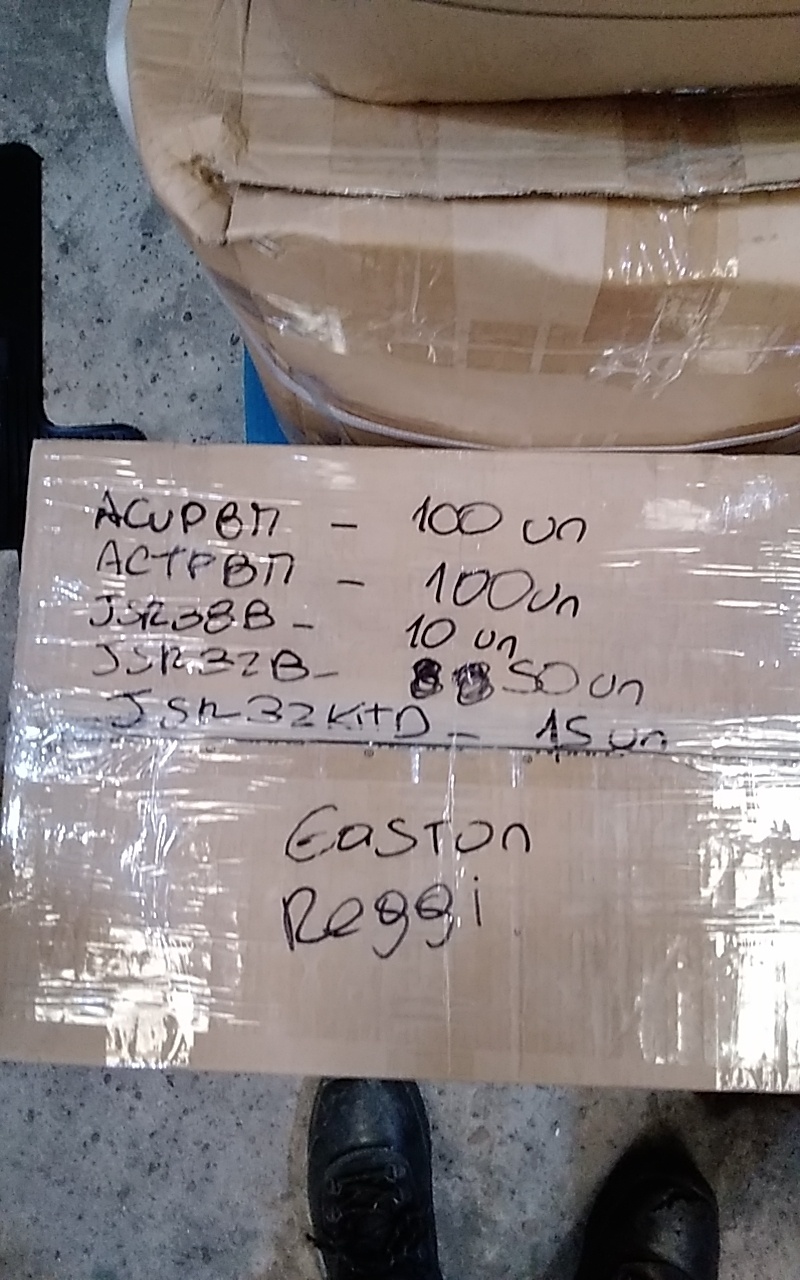 ACUPBM - 100 un
ACTPBM - 100un
JSR38B - 10 un
JSR32B - 50 un
JSR32KitD - 15 un
Easton
Reggi